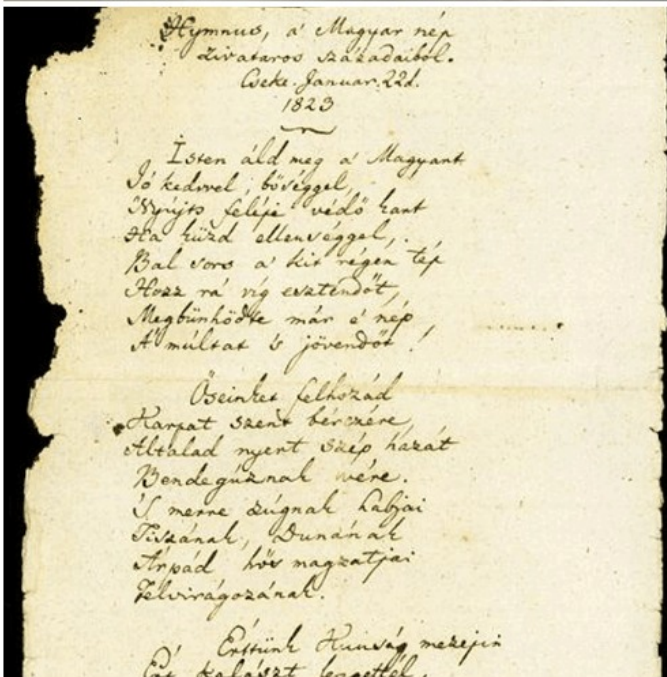 Hymnus, a' Magyar nép
zivataros századaiból.
Cseke. Januar. 22d.
1823
Isten áld meg a' Magyart
Jó kedvvel, bőséggel,
Nyújts feléje védő kart
Ha küzd ellenséggel,
Bal sors a' kit régen tép
Hozz rá víg esztendőt,
Megbünhödte már e' nép
A' múltat 's jövendőt!
Őseinket felhozád
Kárpát szent bérczére,
Általad nyert szép hazát
Bendegúznak vére.
'S merre zúgnak habjai
Tiszának, Dunának
Árpád hős magzatjai
Felvirágozának.
Értünk Kunság mezejin
Ért kalászt lengettél,